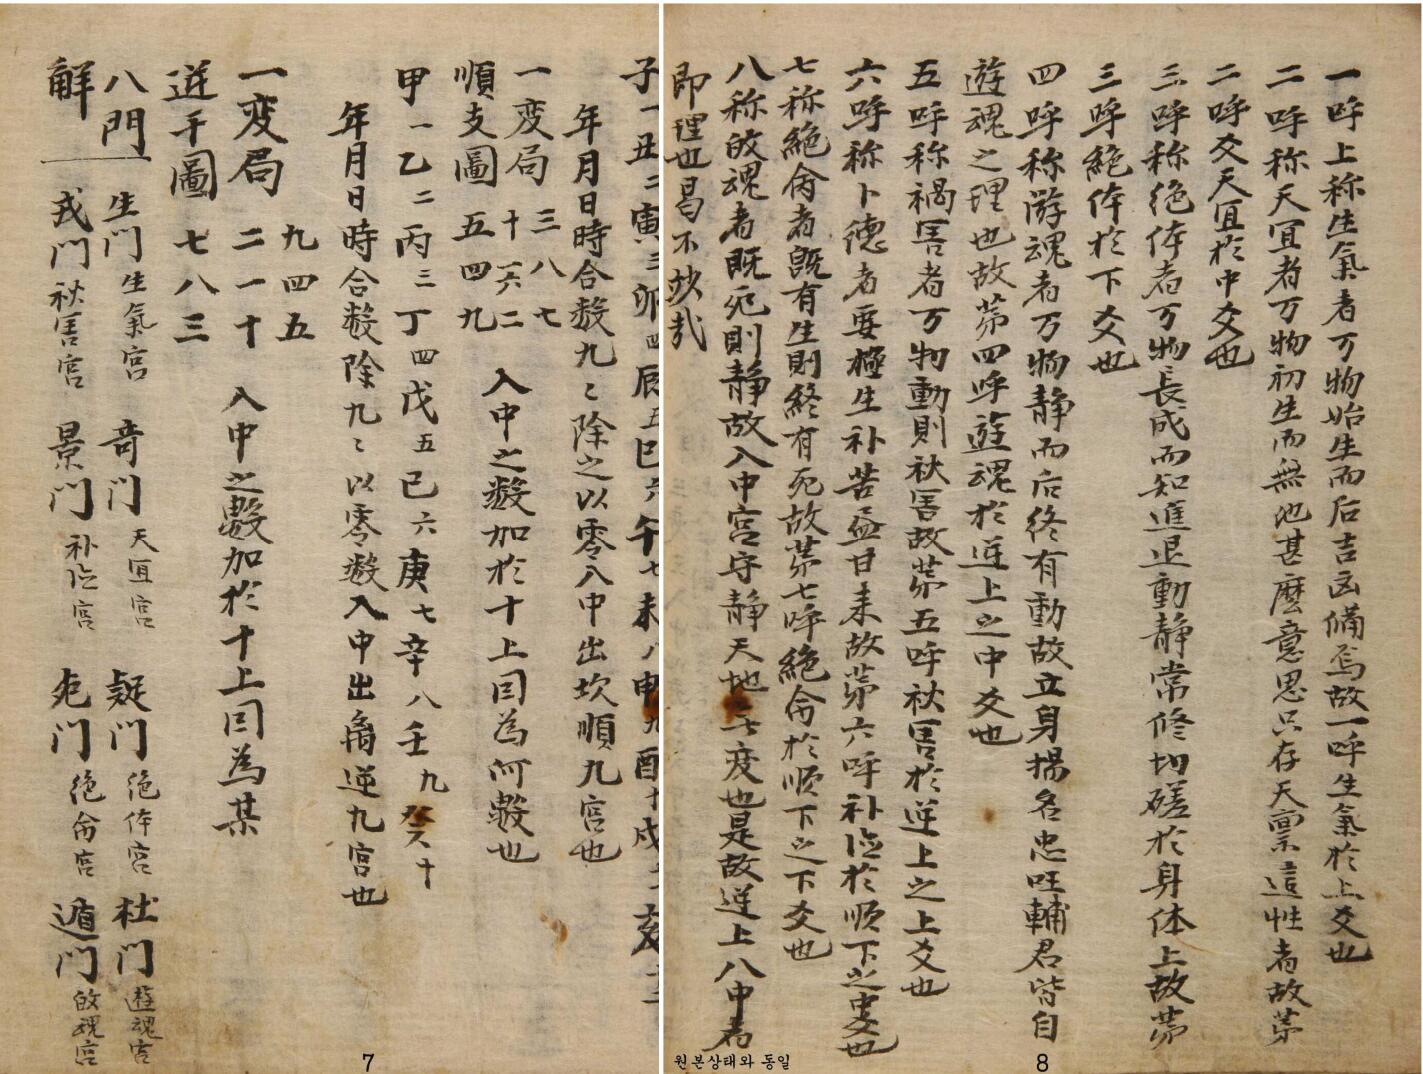 一呼上称生氣者万物始生而后吉凶備焉故一呼生氣於上爻也
二呼称天宜者万物初生而無他甚麼意思只存天稟這性者故第
二呼爻天宜於中爻也
三呼称绝体者万物長成而知進退動静常修切磋於身体上故第
三呼絶体於下爻也
四呼称游魂者万物静而后终有動故立身揚名忠旺輔君皆自
遊魂之理也故第四呼遊魂於逆上之中爻也
五呼称禍害者万物動則秋害故第五呼秋害於逆上之上爻也
六呼称卜德者要極生补苦益甘来故第六呼补德於順下之中爻也
七称絶命者既有生則終有死故第七呼絶命於順下之下爻也
八称故魂者既死則静故入中宮守静天地之变也是故逆上八中為
即理也曷不妙哉
子一丑二寅三卯四辰五巳六午七未八申九酉十戌
年月日時合数九〻除之以零八中出坎順九宮也
一変局 三八七
十六二
順支圖 五四九
入中之数加於十上因為何数也
甲一乙二丙三丁四戊五己六庚七辛八壬九癸十
年月日時合数除九〻以零数入中出离逆九宮也
九四五
一変局 二一十
逆干圖 七八三
入中之數加於十上因為某
八門 生门生氣宮 奇门天宜宮 疑门绝体宮 杜门遊魂宮
觧 戎门秋害宮 景门补德宮 死门绝命宮 遁门故魂宮
7
원본상태와 동일
8